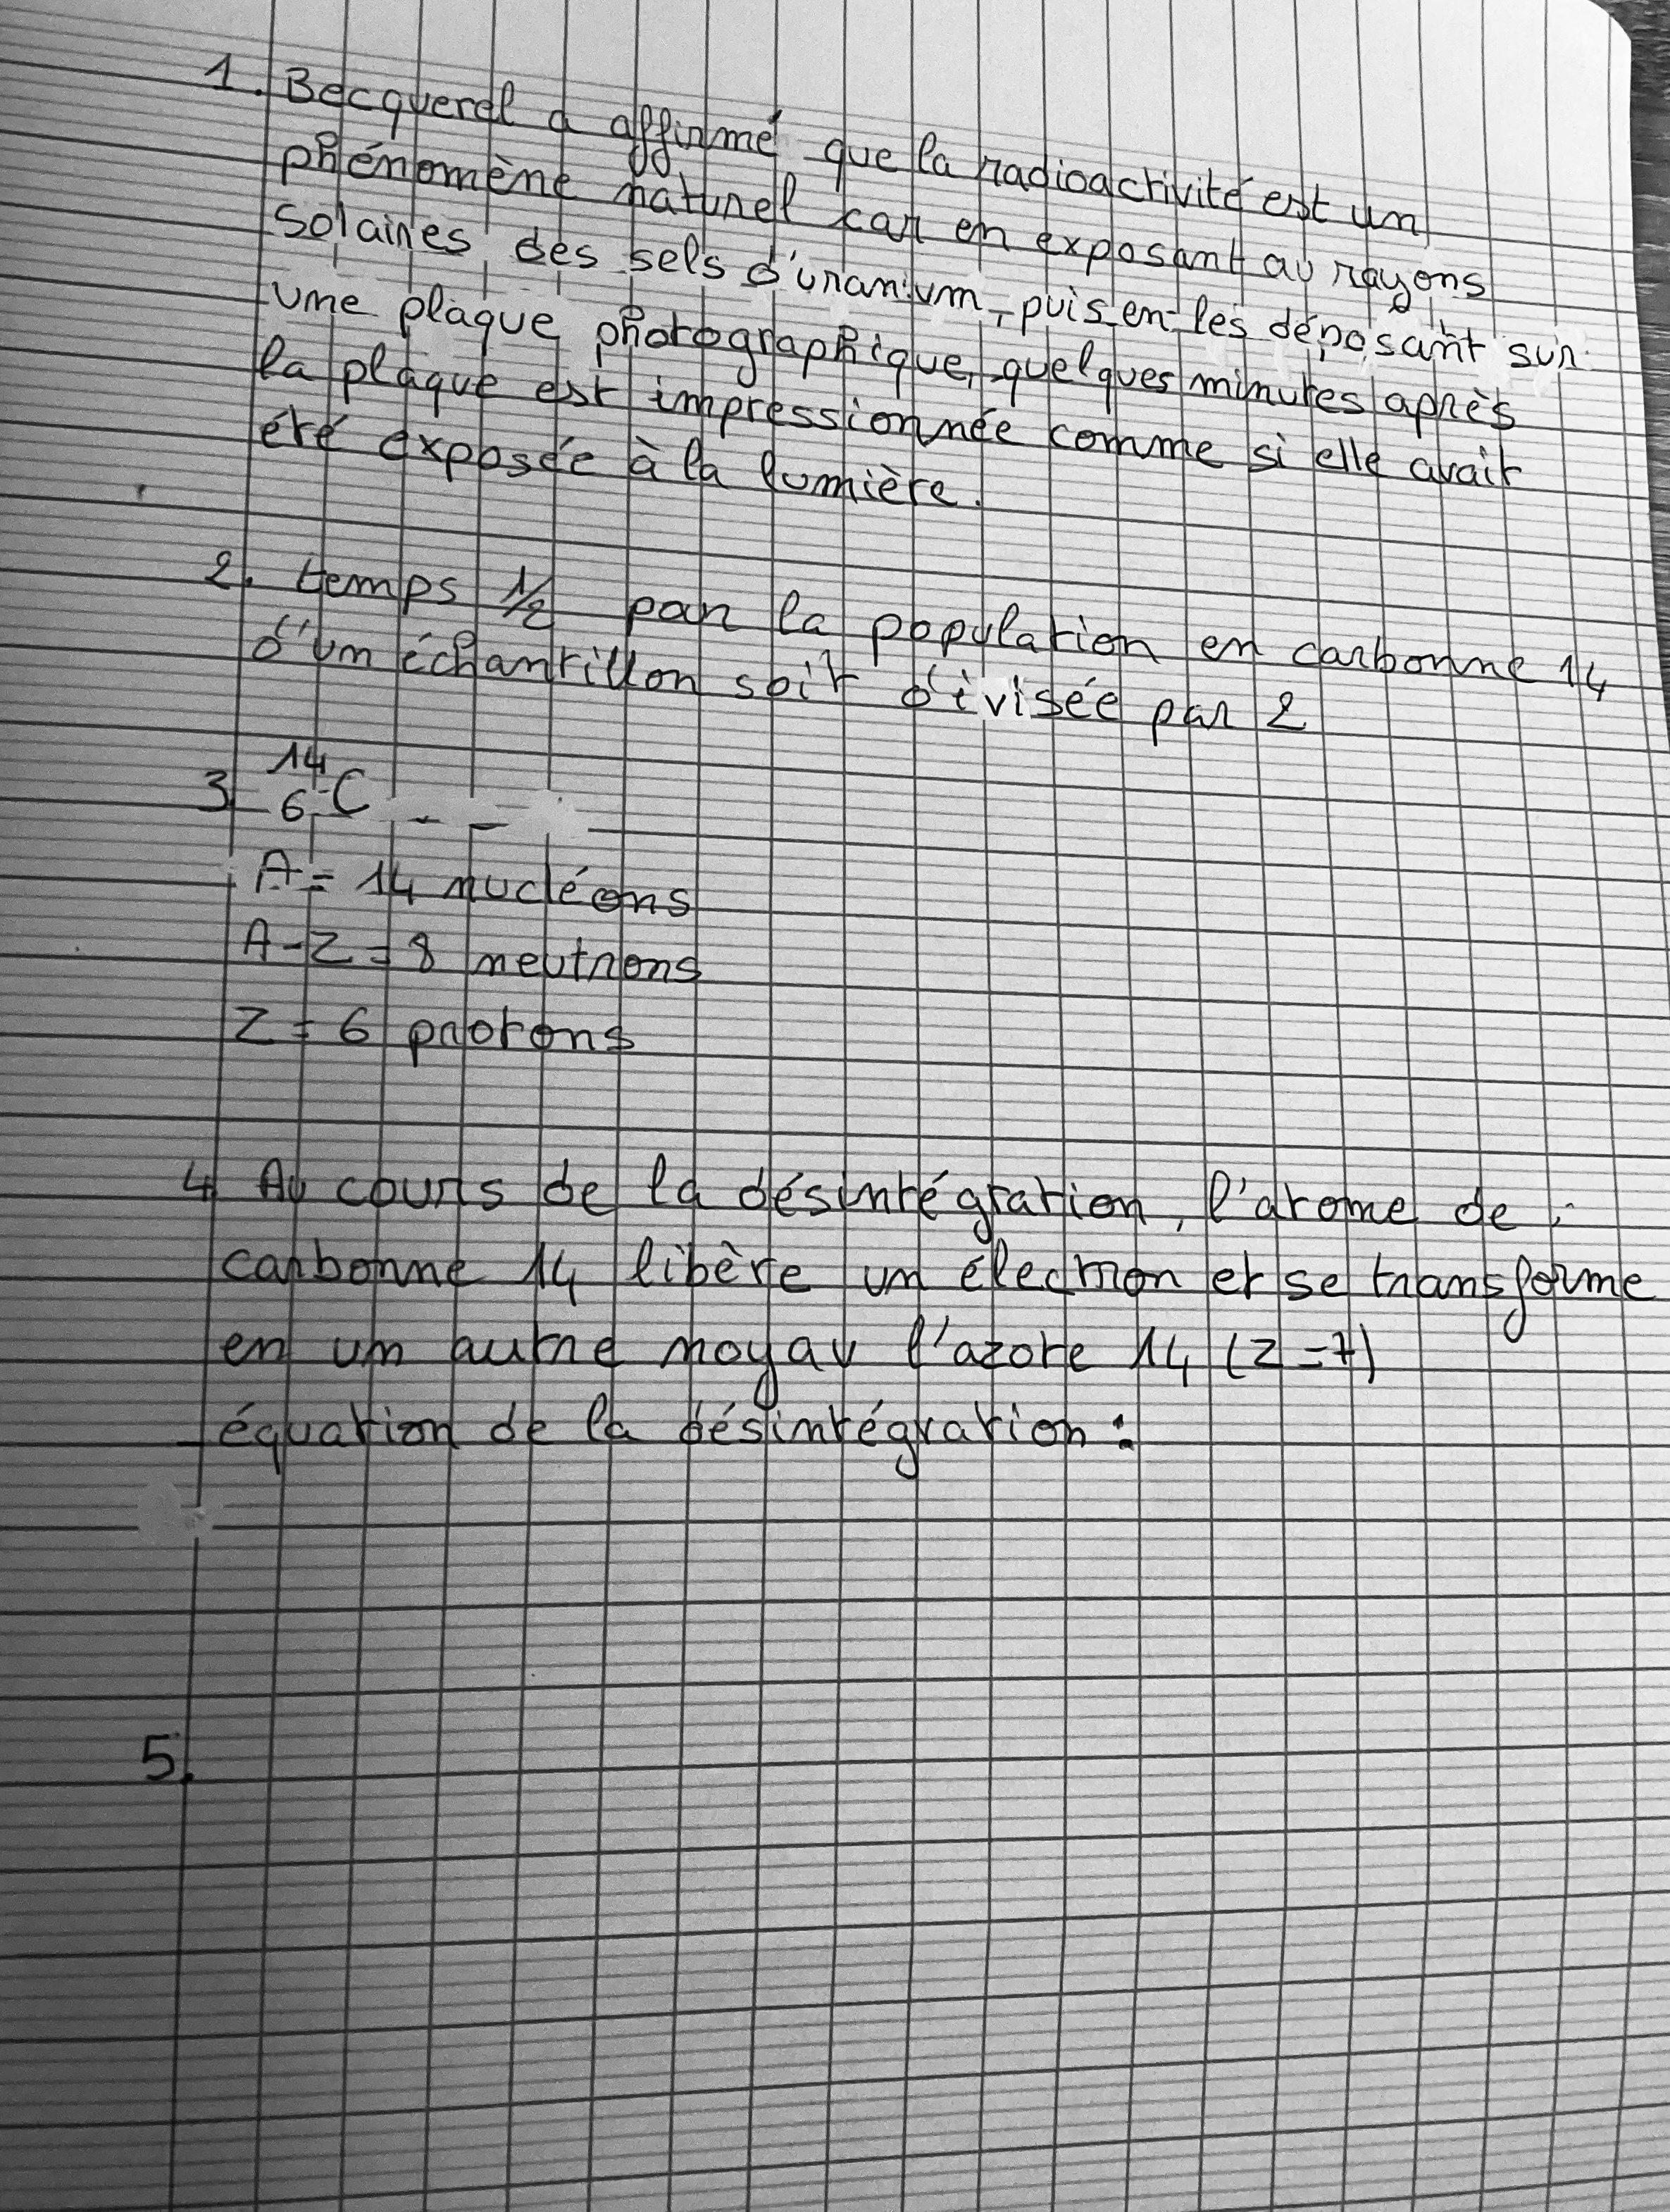 1. Becquerel a affirmé que la radioactivité est un
phénomène naturel car en exposant au rayons
solaires des sels d'uranium, puis en les déposant sur
une plaque photographique, quelques minutes après
la plaque est impressionnée comme si elle avait
été exposée à la lumière.
2. temps 1/2 par la population en carbonne 14
d'un échantillon soit divisée par 2
3 ¹⁴₆C
A = 14 nucléons
A-Z = 8 neutrons
Z = 6 protons
4 Au cours de la désintégration, l'atome de
carbonne 14 libère un électron et se transforme
en un autre noyau l'azote 14 (Z=7)
équation de la désintégration :
5.